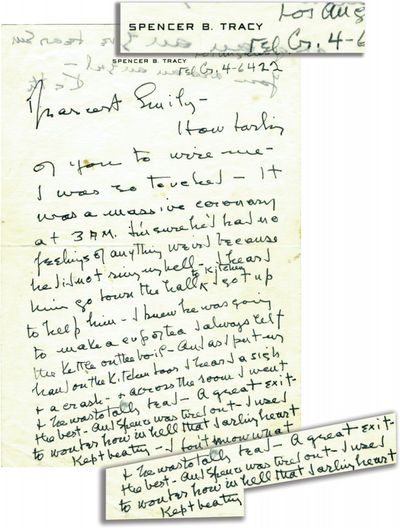 SPENCER B. TRACY
Los Ang
Tel Cr. 4-6
SPENCER B. TRACY
Tel Cr. 4-6422
Dearest Emily -
How darling
of you to wire me -
I was so touched - It
was a massive coronary
at 3 AM. I'm sure he'd had no
feelings of anything weird because
he did not ring my bell - I heard
to kitchen
him go down the hall & got up
to help him - I knew he was going
to make a cup of tea I always left
the kettle on the boil - And as I put my
hand on the kitchen door I heard a sigh
& a crash - & across the room I went
& he was totally dead - A great exit -
the best - And Spence was tired out - I used
to wonder how in hell that darling heart
kept beating - I don't know what
& he was totally dead - A great exit -
the best - And Spence was tired out - I used
to wonder how in hell that darling heart
kept beating